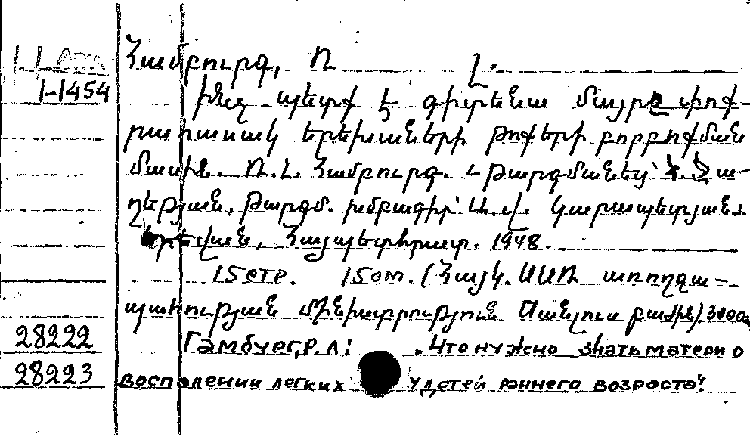 Համբուրգ, Ռ Լ.
1-1454
Ինչ պետք է գիտենա մայրը փոք-
րահասակ երեխաների թոքերի բորբոքման
մասին. Ռ. Լ. Համբուրգ. Թարգմանեց
ղեթյան. Թարգմ. խմբագիր՝ Կարապետյան.
Երևան, Հայպետհրատ. 1948.
15 стр. 15 от. (Հայկ. ՍՍՌ առողջա-
պահության մինիստրություն Սանլուս
28222 Гамбург, Р. Л: Что нужно знать матери о
28223 воспалении легких у детей раннего возраста?